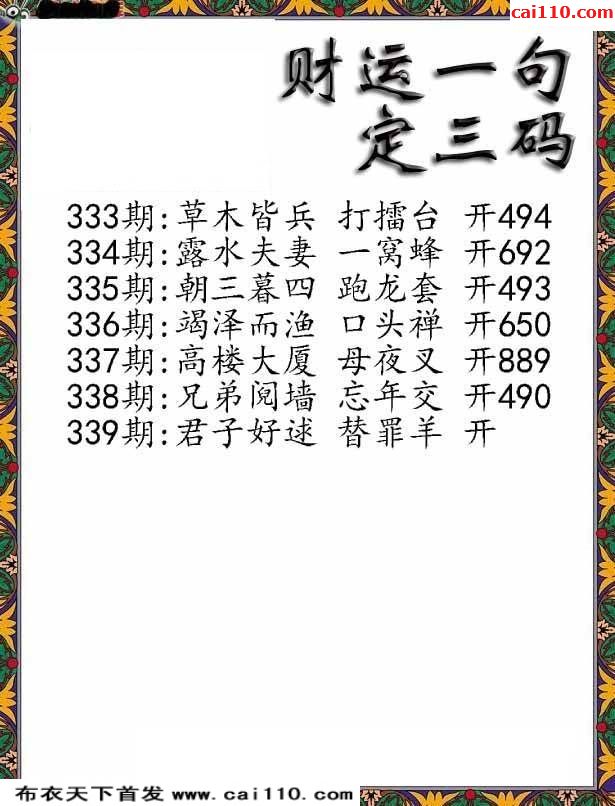 cai110.com
财运一句
定三码
333期:草木皆兵 打擂台 开494
334期:露水夫妻 一窝蜂 开692
335期:朝三暮四 跑龙套 开493
336期:竭泽而渔 口头禅 开650
337期:高楼大厦 母夜叉 开889
338期:兄弟阋墙 忘年交 开490
339期:君子好逑 替罪羊 开
布衣天下首发 www.cai110.com